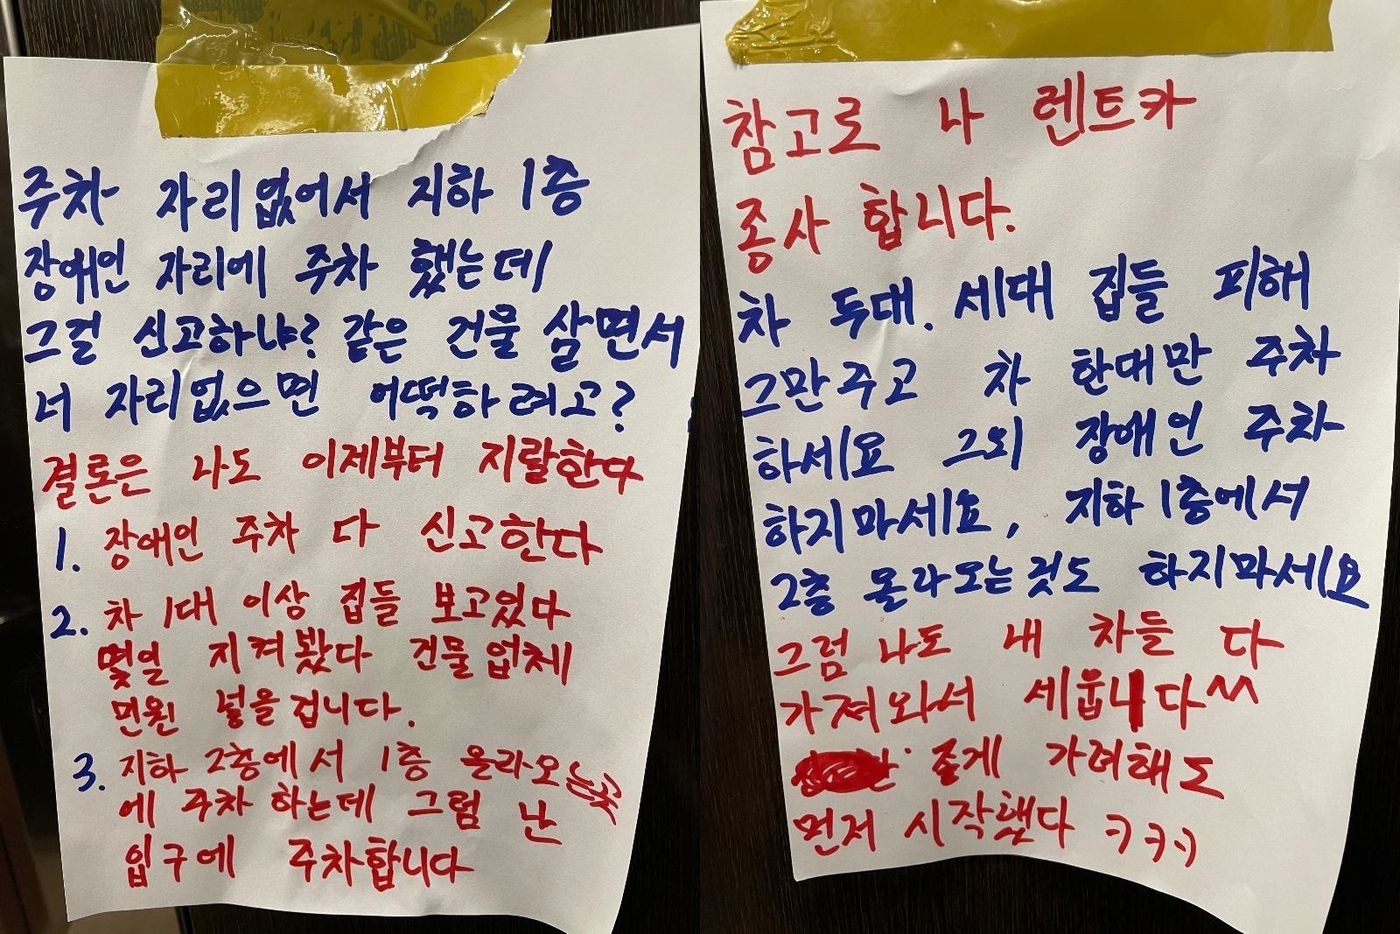 주차 자리없어서 지하 1층
장애인 자리에 주차 했는데
그걸 신고하냐? 같은 건물 살면서
너 자리없으면 어떡하려고?
결론은 나도 이제부터 지랄한다
1. 장애인 주차 다 신고한다
2. 차 1대 이상 집들 보고있다
몇일 지켜봤다 건물업체
민원 넣을겁니다.
3. 지하 2층에서 1층 올라오는곳
에 주차 하는데 그럼 난
입구에 주차합니다
참고로 나 렌트카
종사 합니다.
차 두대. 세대 집들 피해
그만주고 차 한대만 주차
하세요 그외 장애인 주차
하지마세요, 지하 1층에서
2층 올라오는것도 하지마세요
그럼 나도 내 차들 다
가져와서 세웁니다^^
좋게 가려해도
먼저 시작했다 ㅋㅋㅋ